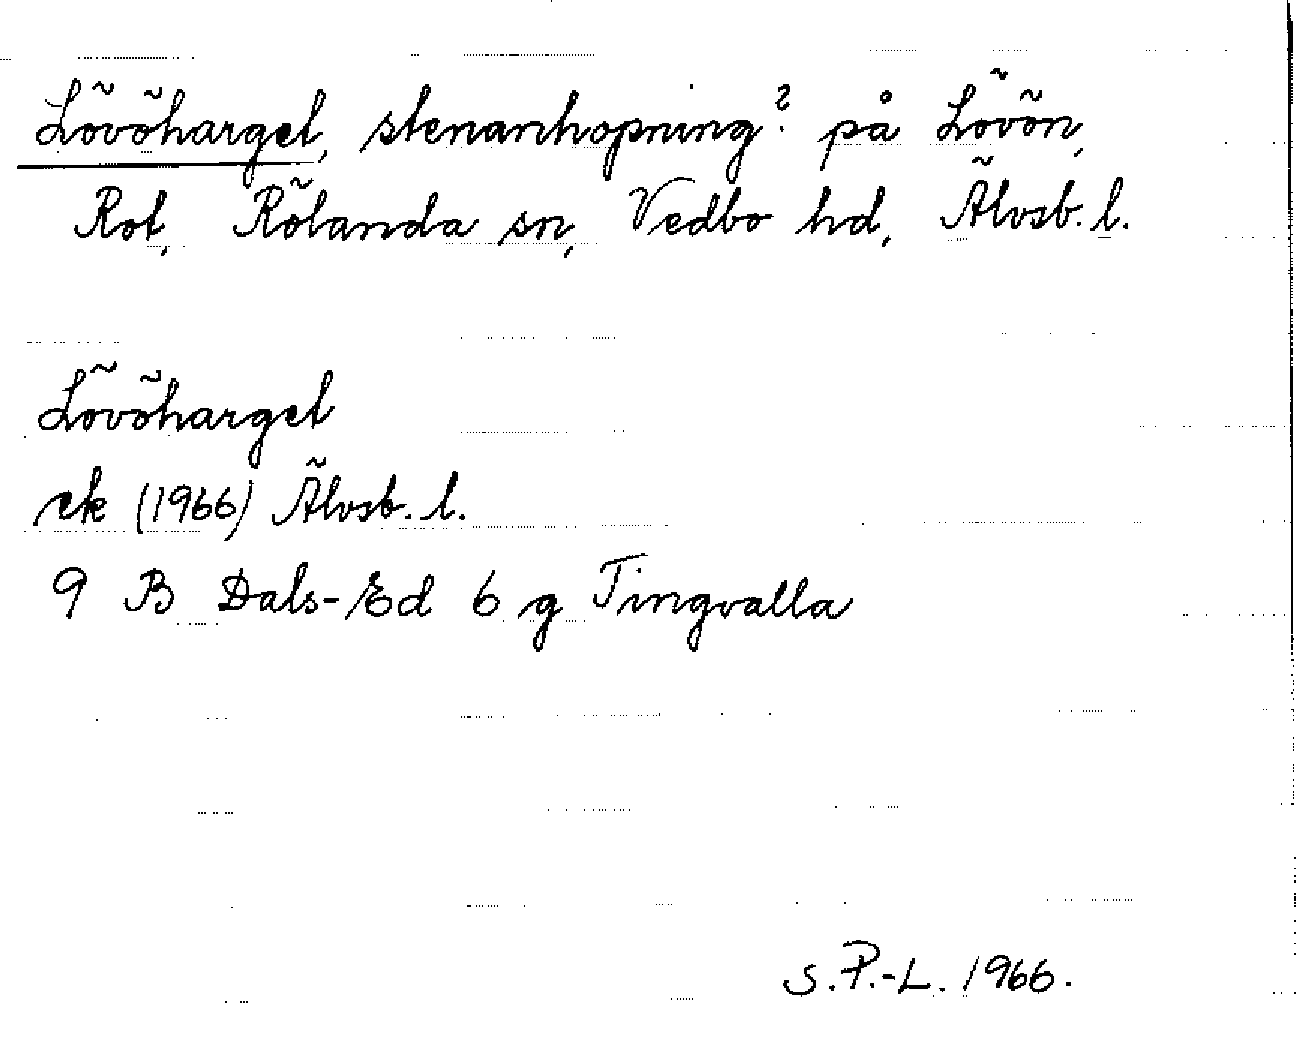 Lövöharget, stenanhopning? på Lövön,
Rot, Rölanda sn, Vedbo hd, Älvsb. l.
Lövöharget
ek (1966) Älvsb. l.
9 B Dals-Ed 6 g Tingvalla
S.P.-L. 1966.